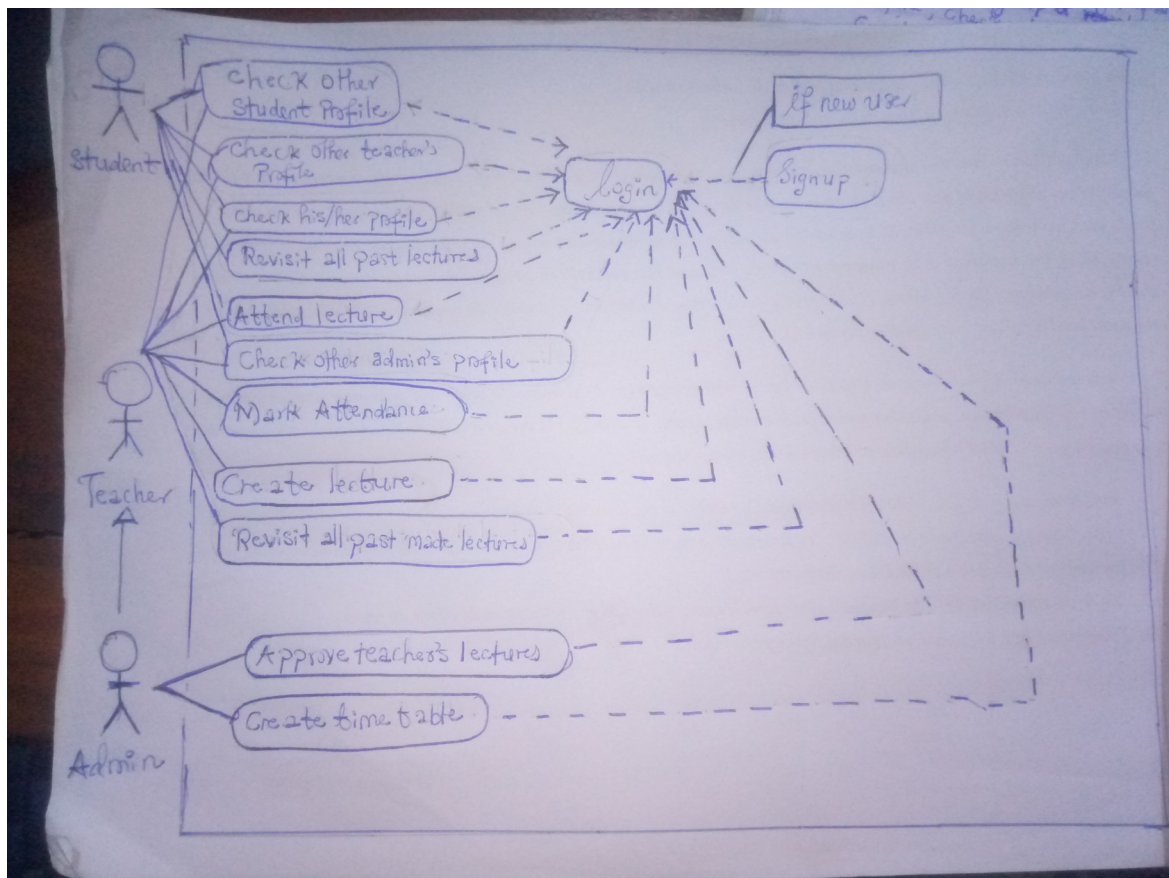 check
Student
Check other
Student Profile
Check other teacher's
Profile
Check his/her profile
Revisit all past lectures
Attend lecture
Check other admin's profile
Mark Attendance
Create lecture
Revisit all past made lectures
Teacher
Approve teacher's lectures
Create time table
Admin
if new user
Login
Signup